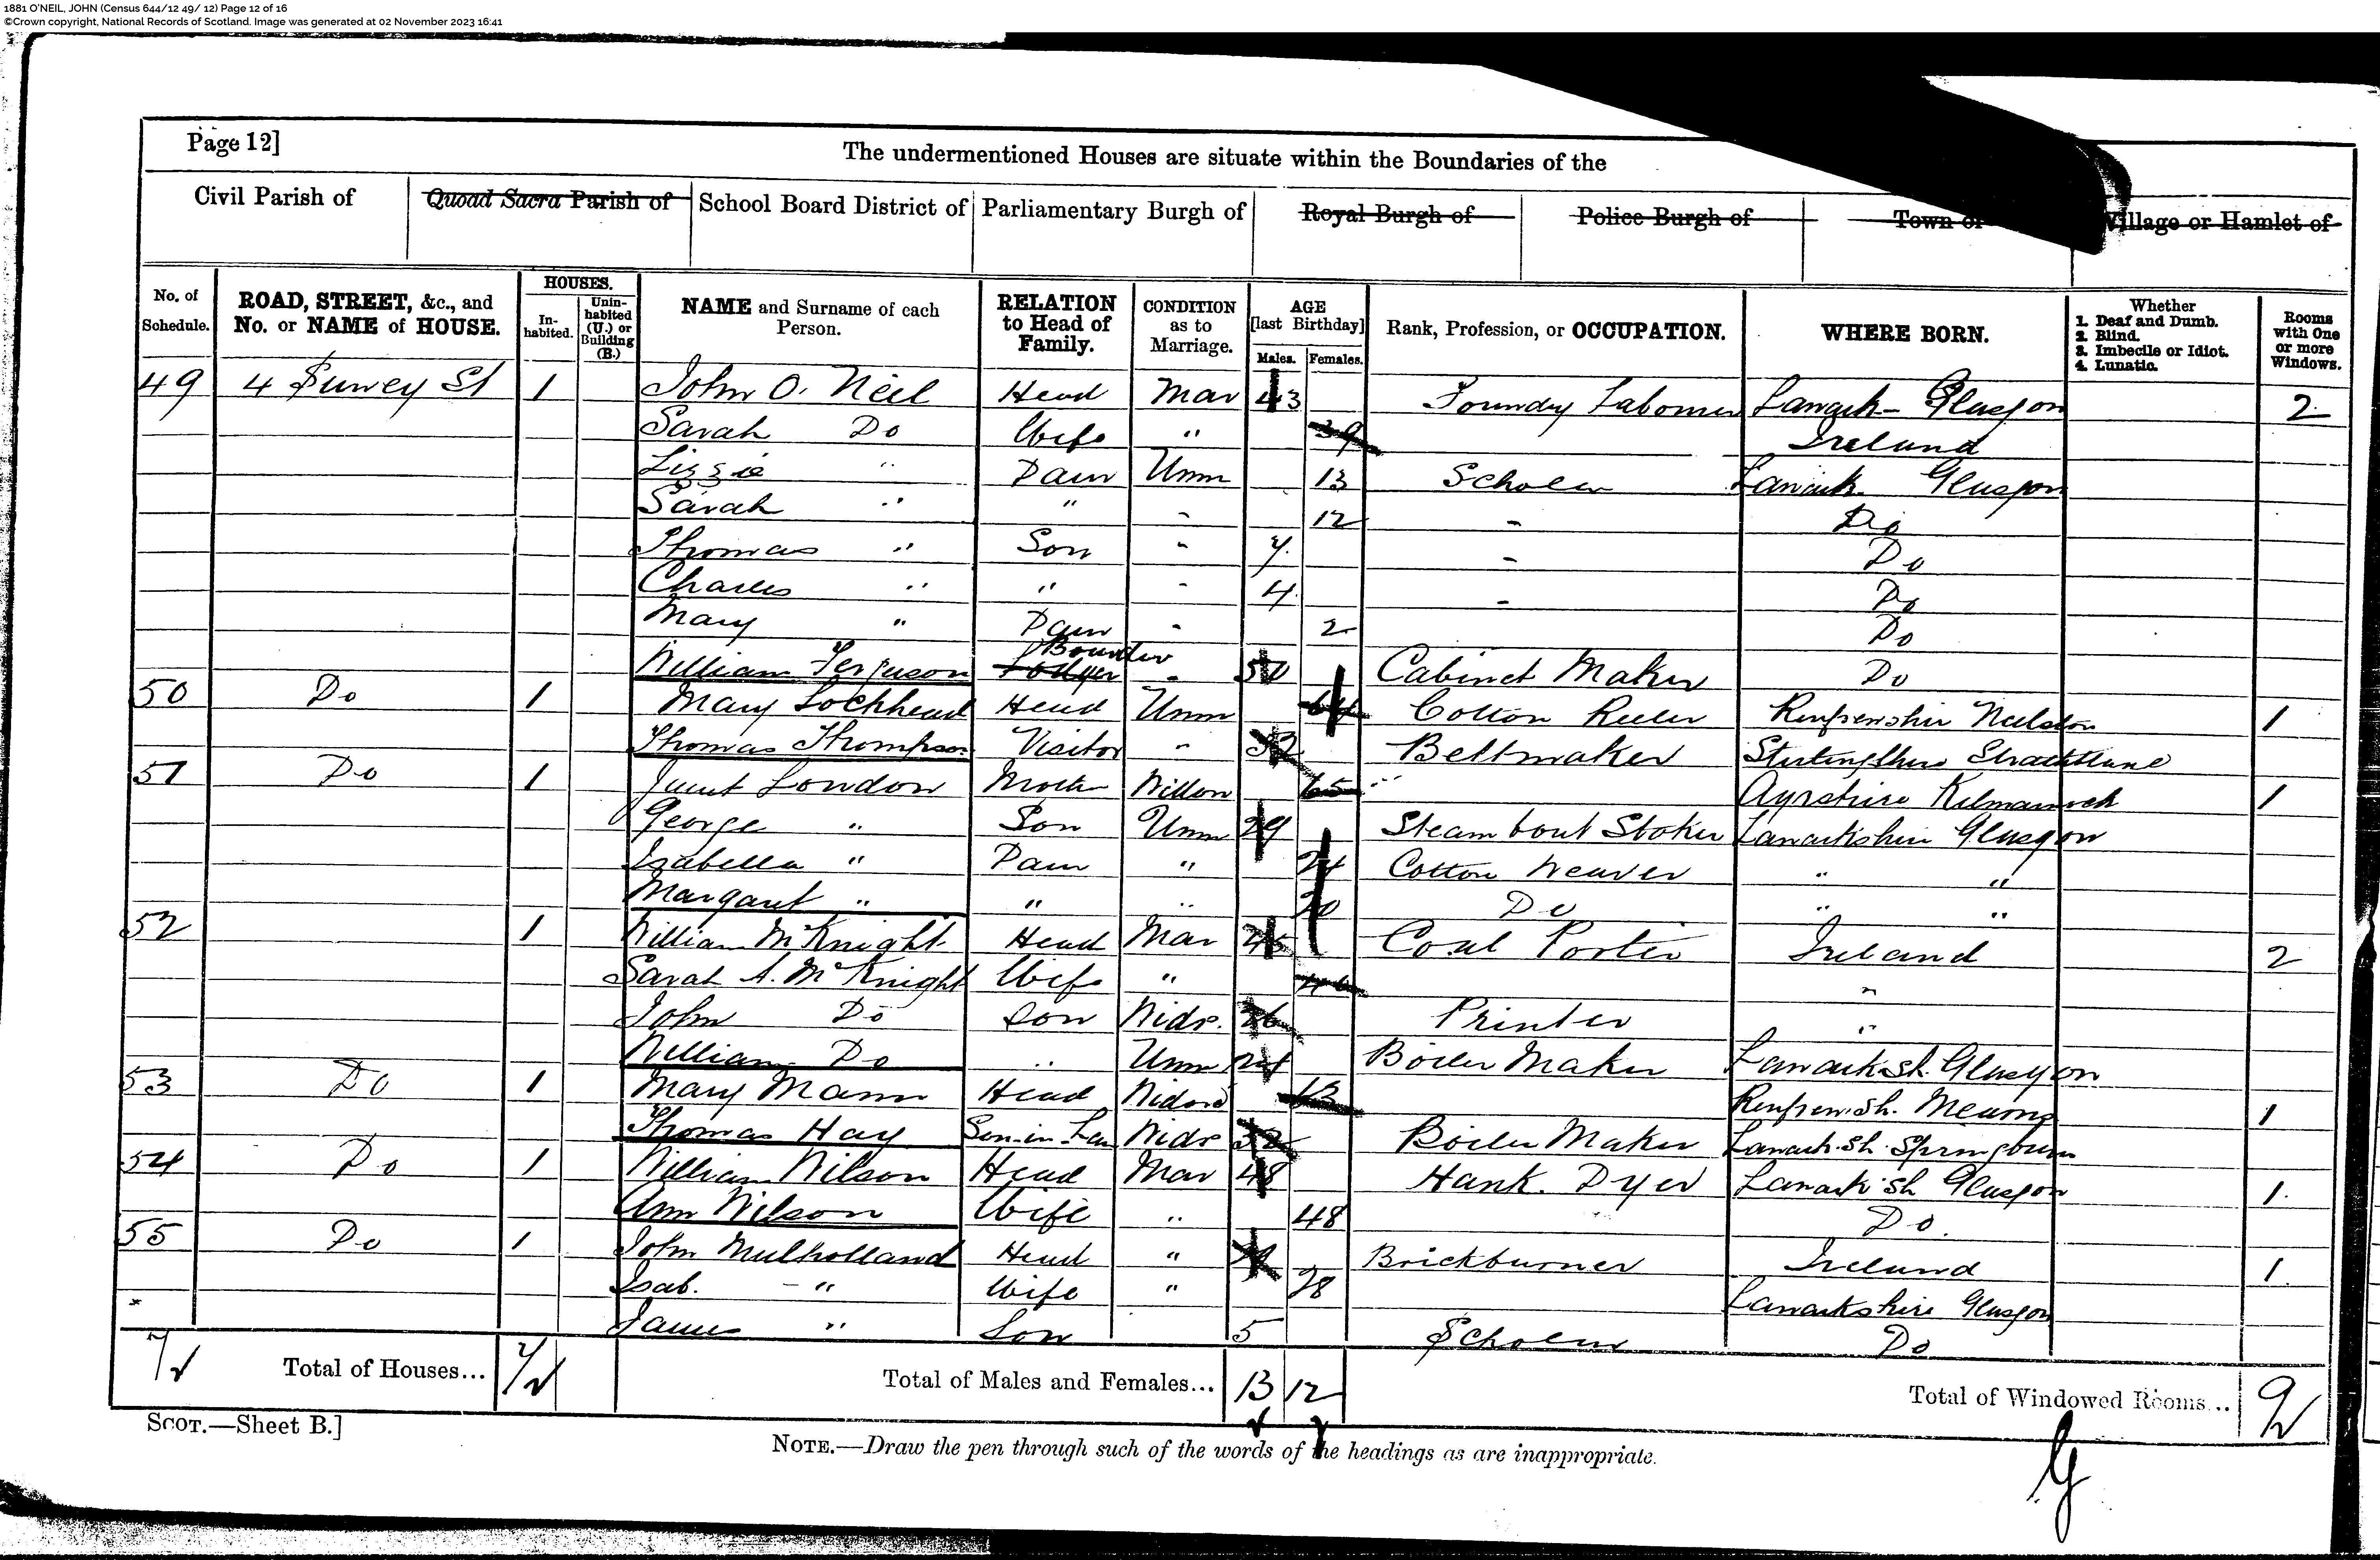 1881 O'NEIL, JOHN (Census 644/12 49/ 12) Page 12 of 16
©Crown copyright, National Records of Scotland. Image was generated at 02 November 2023 16:41
Page 12]
The undermentioned Houses are situate within the Boundaries of the
Civil Parish of Quoad Sacra Parish of School Board District of Parliamentary Burgh of Royal Burgh of Police Burgh of Town of Village or Hamlet of
No. of Schedule. ROAD, STREET, &c., and No. or NAME of HOUSE. HOUSES. In-habited. Unin-habited (U.) or Building (B.) NAME and Surname of each Person. RELATION to Head of Family. CONDITION as to Marriage. AGE [last Birthday] Males. Females. Rank, Profession, or OCCUPATION. WHERE BORN. Whether 1. Deaf and Dumb. 2. Blind. 3. Imbecile or Idiot. 4. Lunatic. Rooms with One or more Windows.
49 4 St 1 John O'Neil Head Mar 43 Foundry Labourer Lanark- Glasgow 2
Sarah Do Wife " 39 Ireland
Lizzie " Daur Unm 13 Scholar Lanark Glasgow
Sarah " " " 12 " Do
Thomas " Son " 7 " Do
Charles " " " 4 " Do
Mary " Daur " 2 Do
William Ferguson Lodger Boarder " 50 Cabinet Maker Do
50 Do 1 Mary Lochhead Head Unm 64 Cotton Reeler Renfrewshire Neilston 1
Thomas Thompson Visitor " 32 Beltmaker Stirlingshire Strathblane
51 Do 1 Janet London Mother Widow 65 Ayrshire Kilmarnock 1
George " Son Unm 29 Steam boat Stoker Lanarkshire Glasgow
Isabella " Daur " 24 Cotton Weaver " "
Margaret " " " 20 Do " "
52 1 William McKnight Head Mar 45 Coal Porter Ireland 2
Sarah A. McKnight Wife " 46 "
John Do Son Widr. 26 Printer "
William Do " Unm Boiler Maker Lanark.sh. Glasgow
53 Do 1 Mary Mann Head Widow 63 Renfrew.sh. Mearns 1
Thomas Hay Son-in-Law Widr 32 Boiler Maker Lanark.sh. Springburn
54 Do 1 William Wilson Head Mar 48 Hank Dyer Lanark.sh Glasgow 1
Ann Wilson Wife " 48 Do.
55 Do 1 John Mulholland Head " Brickburner Ireland 1
Isab. " Wife " 28 Lanarkshire Glasgow
James " Son 5 Scholar Do
7 Total of Houses... 7 Total of Males and Females... 13 12 Total of Windowed Rooms... 9
SCOT.—Sheet B.]
NOTE.—Draw the pen through such of the words of the headings as are inappropriate.